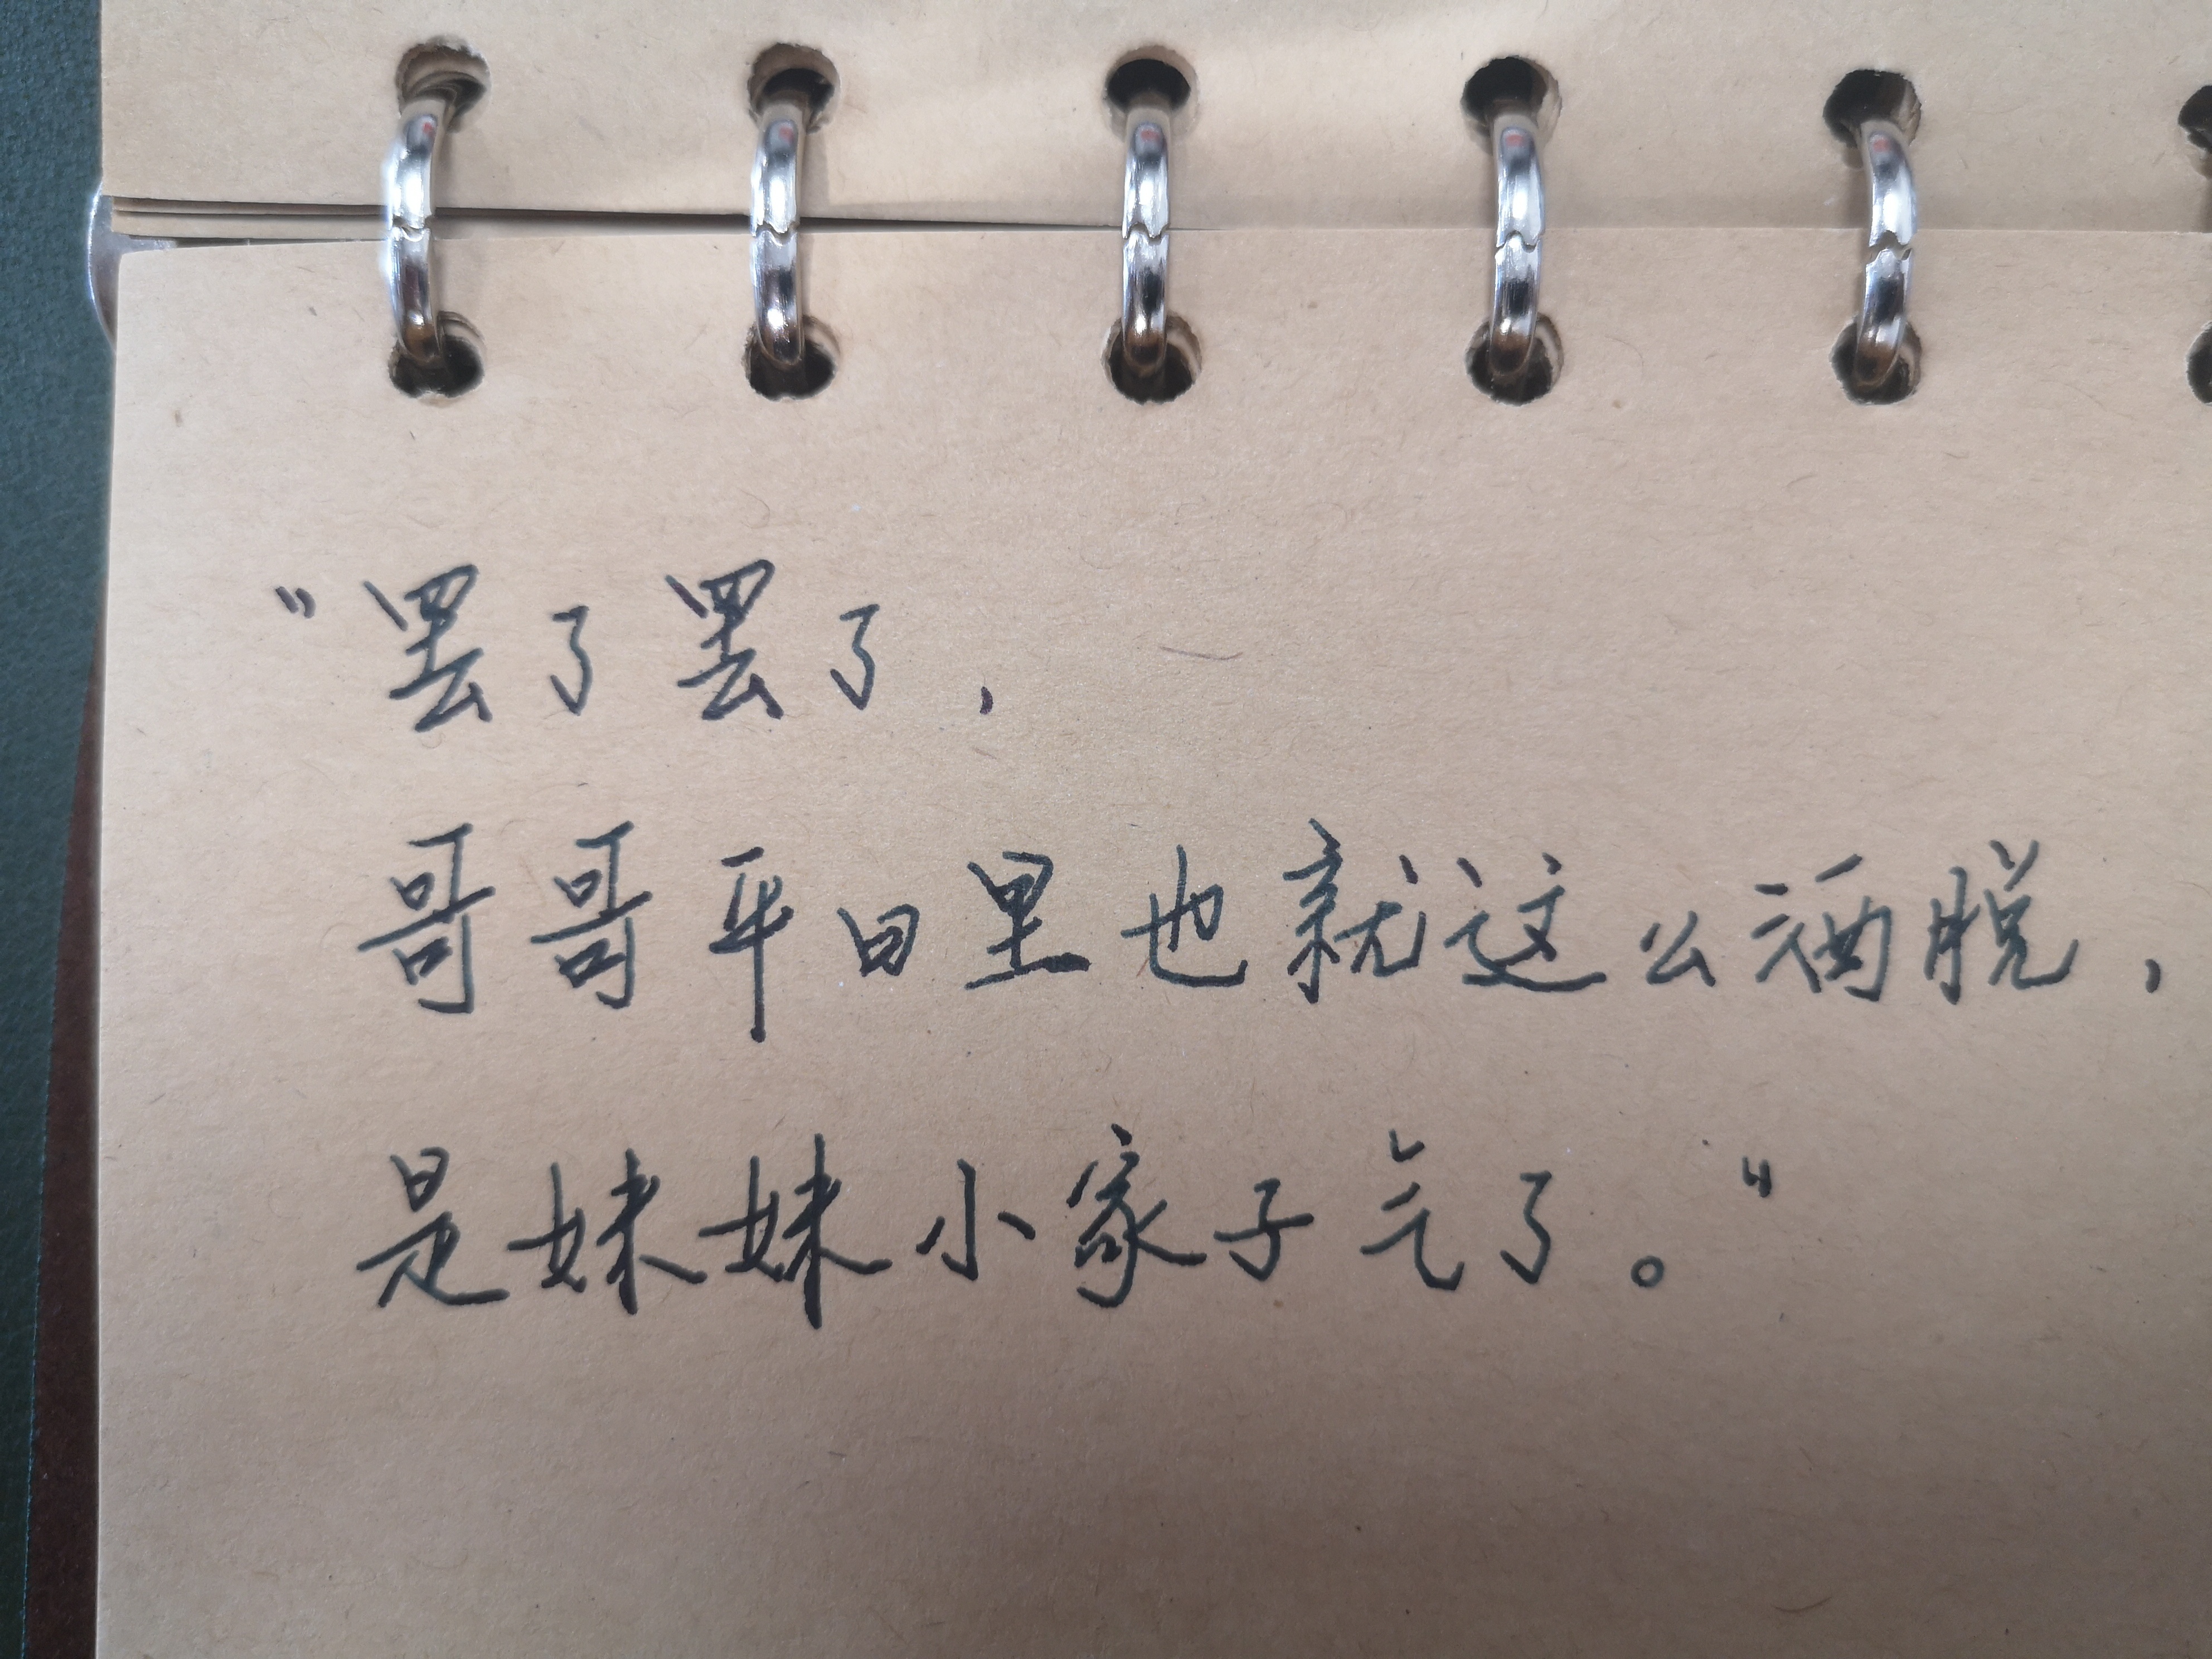 “罢了罢了,
哥哥平日里也就这么洒脱,
是妹妹小家子气了。”